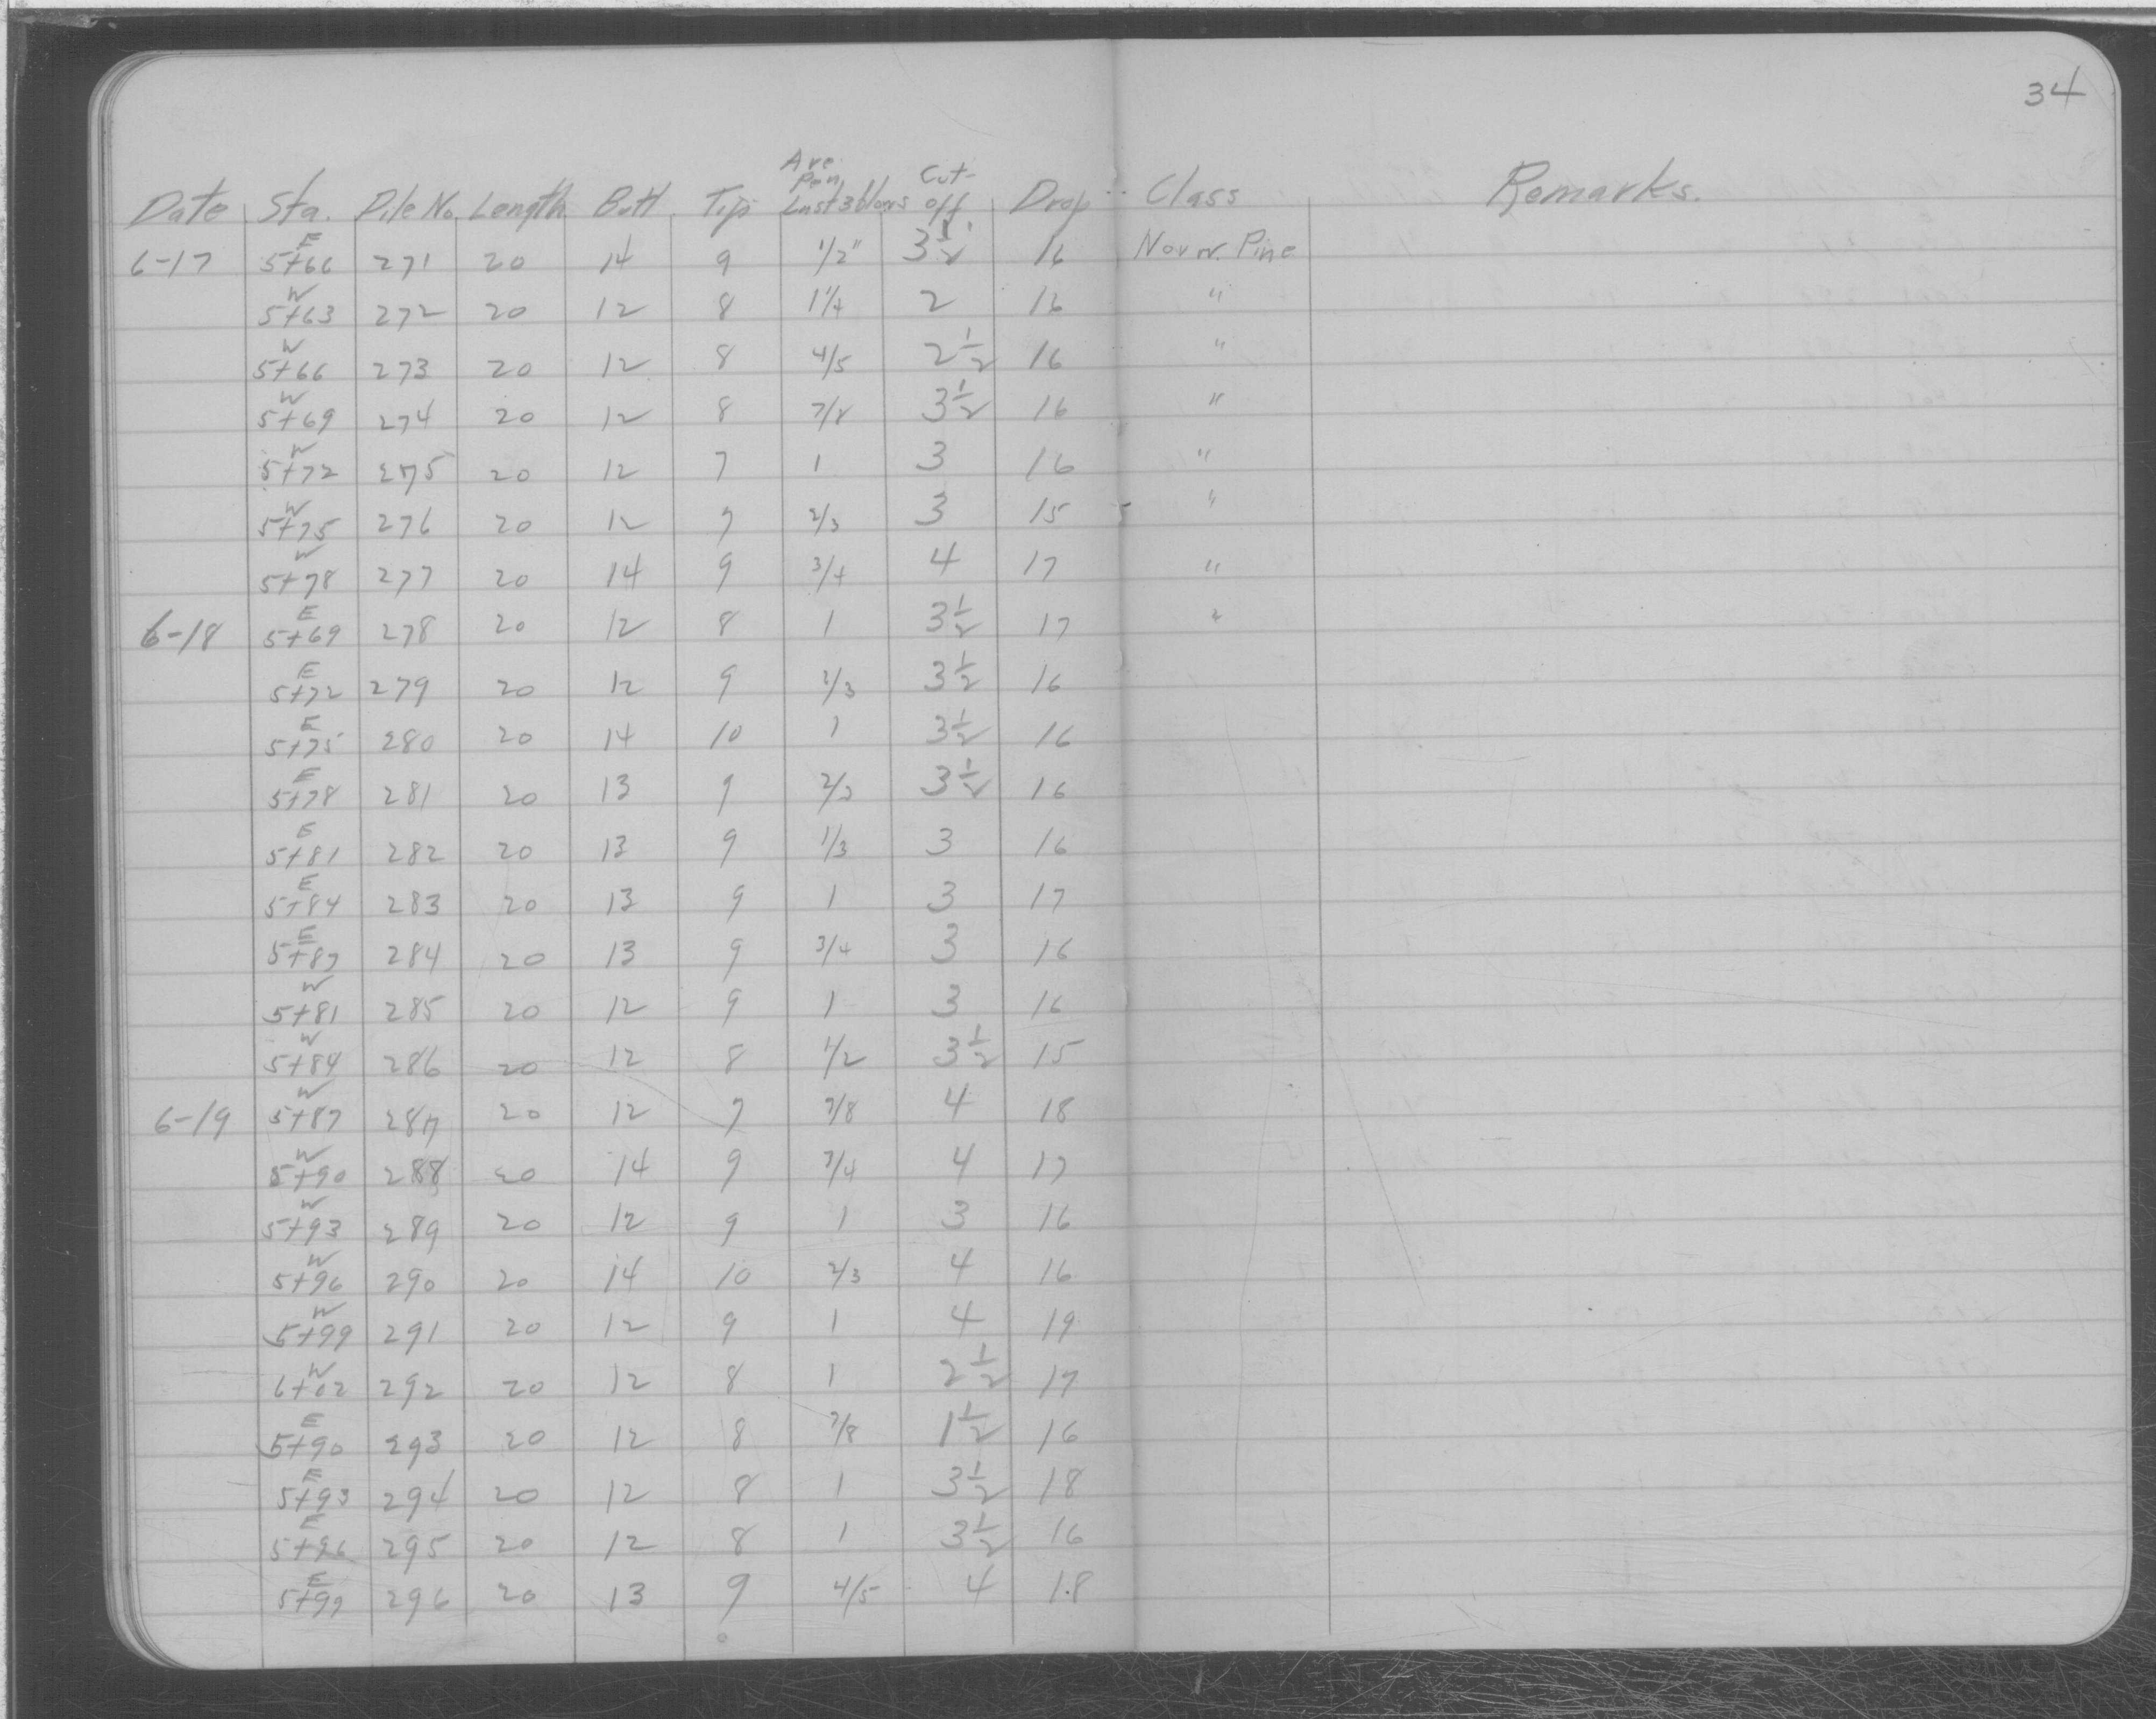 34
Date Sta. Pile No. Length Butt Tip Ave. Pen. Last 3 blows Cut-off Drop Class Remarks.
6-17 E 5+66 271 20 14 9 1/2" 3 1/2' 16 Norw. Pine
W 5+63 272 20 12 8 1 1/4 2 16 "
W 5+66 273 20 12 8 4/5 2 1/2 16 "
W 5+69 274 20 12 8 7/8 3 1/2 16 "
W 5+72 275 20 12 7 1 3 16 "
W 5+75 276 20 12 7 2/3 3 15 "
W 5+78 277 20 14 9 3/4 4 17 "
6-18 E 5+69 278 20 12 8 1 3 1/2 17 "
E 5+72 279 20 12 9 2/3 3 1/2 16
E 5+75 280 20 14 10 1 3 1/2 16
E 5+78 281 20 13 9 2/3 3 1/2 16
E 5+81 282 20 13 9 1/3 3 16
E 5+84 283 20 13 9 1 3 17
E 5+87 284 20 13 9 3/4 3 16
W 5+81 285 20 12 9 1 3 16
W 5+84 286 20 12 8 1/2 3 1/2 15
6-19 W 5+87 287 20 12 7 7/8 4 18
W 5+90 288 20 14 9 3/4 4 17
W 5+93 289 20 12 9 1 3 16
W 5+96 290 20 14 10 2/3 4 16
W 5+99 291 20 12 9 1 4 19
W 6+02 292 20 12 8 1 2 1/2 17
E 5+90 293 20 12 8 7/8 1 1/2 16
E 5+93 294 20 12 8 1 3 1/2 18
E 5+96 295 20 12 8 1 3 1/2 16
E 5+99 296 20 13 9 4/5 4 18